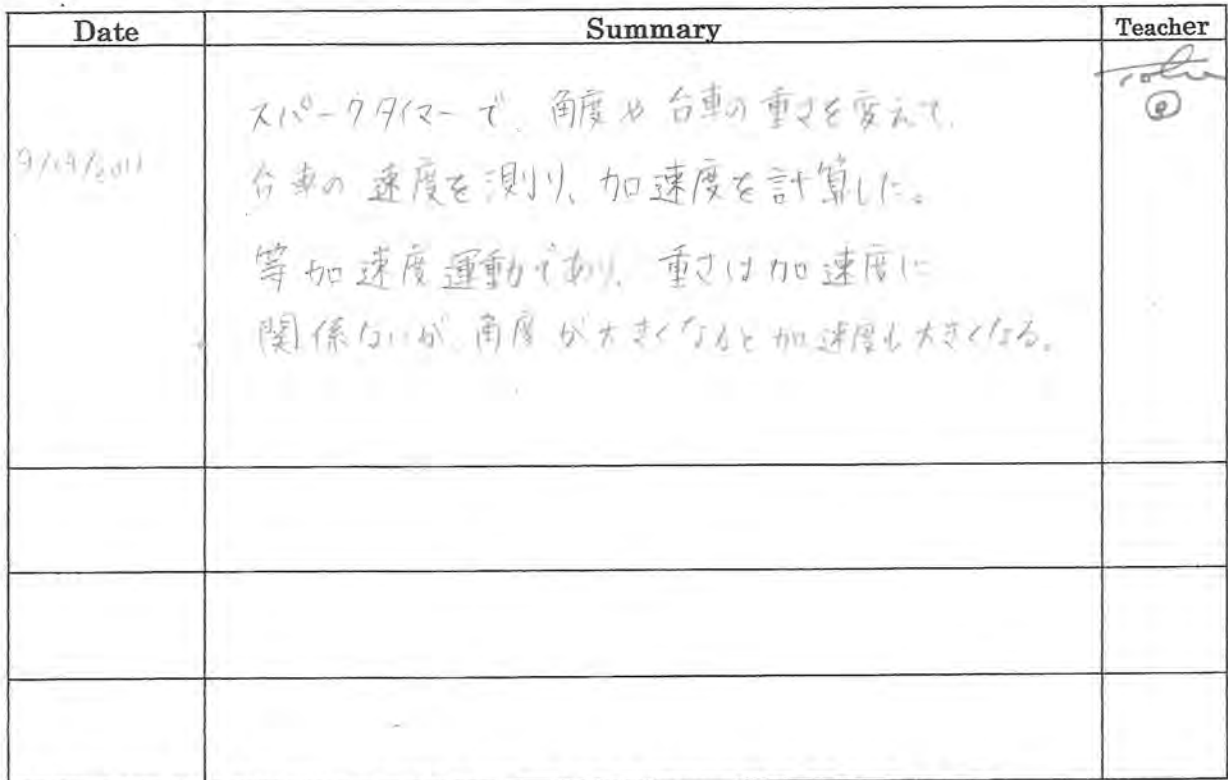 Date Summary Teacher
スパークタイマーで、角度や台車の重さを変えて、
台車の速度を測り、加速度を計算した。
等加速度運動であり、重さは加速度に
関係ないが、角度が大きくなると加速度も大きくなる。